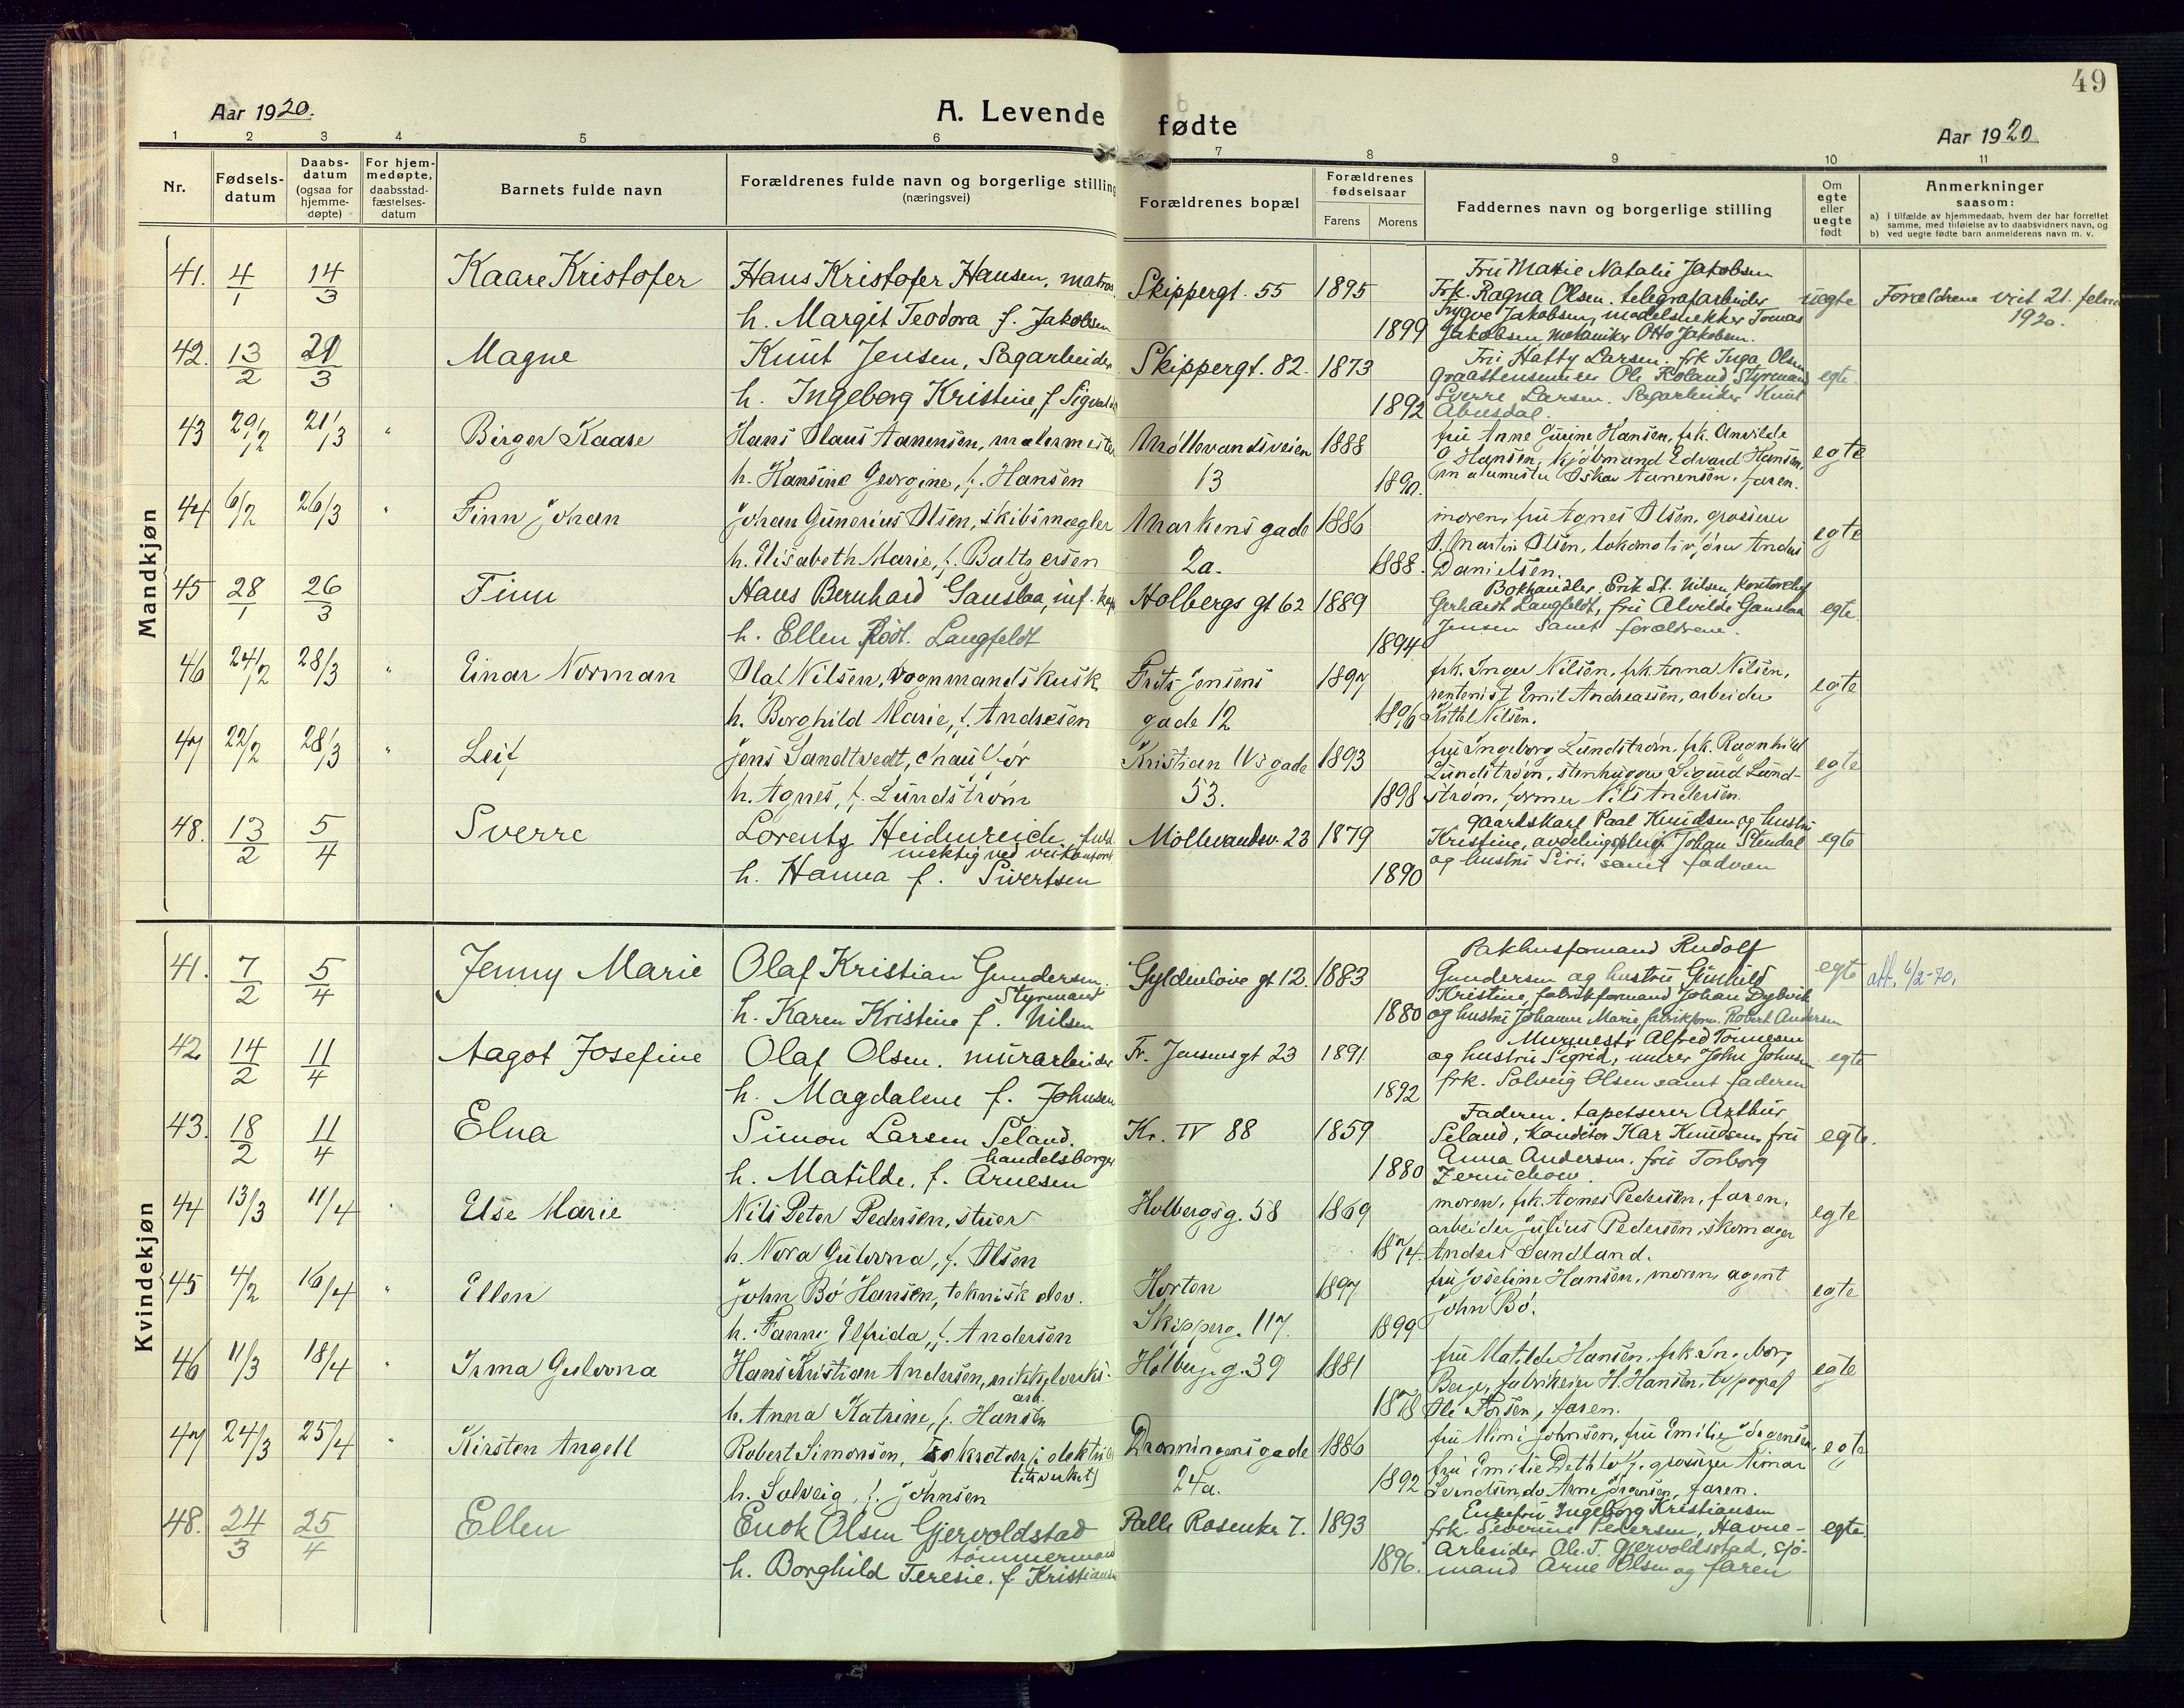 49
Aar 1920.
A. Levende fødte
Aar 1920
1 2 3 4 5 6 7 8 9 10 11
Nr.
Fødsels-
datum
Daabs-
datum
(ogsaa for
hjemme-
døpte)
For hjem-
medøpte,
daabsstad-
fæstelses-
datum
Barnets fulde navn
Forældrenes fulde navn og borgerlige stilling
(næringsvei)
Forældrenes bopæl
Forældrenes
fødselsaar
Farens Morens
Faddernes navn og borgerlige stilling
Om
egte
eller
uegte
født
Anmerkninger
saasom:
a) i tilfælde av hjemmedaab, hvem der har forrettet
samme, med tilføielse av to daabsvidners navn, og
b) ved uegte fødte barn anmelderens navn m. v.
Mandkjøn
41. 4/1 14/3 Kaare Kristofer Hans Kristofer Hansen, matros Skippergt. 55 1895 uegte Forældrene viet 21. febru
1920.
h. Margit Teodora f. Jakobsen 1899
Fru Marie Natalie Jakobsen
Frk. Ragna Olsen. telegrafarbeider
Trygve Jakobsen, modelsnekker Tomas
Jakobsen, mekaniker Otto Jakobsen.
42. 13/2 21/3 Magne Knut Jensen, Sagarbeider Skippergt. 82. 1873 egte.
h. Ingeborg Kristine, f Sigvalds 1892
Fru Hatty Larsen. frk Inga Olsen
Graastensemner Ole Roland Styrmand
Sverre Larsen. Sagarbeider Knut
Abusdal.
43 29/2 21/3 " Birger Kaare Hans Olaus Aanensen, malermester Møllevandsveien 1888 egte
h. Hansine Georgine, f. Hansen 13 1890.
fru Anne Gurine Hansen, frk. Anvilde
Hansen, kjøbmand Edvard Hansen,
Oskar Aanensen. faren.
44 6/2 26/3 " Finn Johan Johan Gunerius Olsen, skibsmægler Markens gade 1886 egte
h. Elisabeth Marie, f. Baltzersen 2a. 1888.
moren, fru Agnes Olsen, grosserer
O. Martin Olsen, lokomotivfører Anders
Danielsen.
45 28/1 26/3 Finn Hans Bernhard Gauslaa, inf. kap Holbergs gt 62 1889 egte.
h. Ellen født. Langfeldt 1894
Bokhandler Erik St. Nilsen, Kontorchef
Gerhardt Langfeldt, fru Alvilde Gauslaa
Jensen samt forældrene.
46 24/2 28/3 " Einar Norman Olaf Nilsen, vognmandskusk Frits Jensens 1897 egte
h. Borghild Marie, f. Andresen gade 12 1896
frk. Inger Nilsen, frk Anna Nilsen,
rentenist Emil Andreassen, arbeider
Kittel Nilsen.
47 22/2 28/3 " Leif Jens Sandtvedt, chauffør Kristian IVs gade 1893 egte
h. Agnes, f. Lundstrøm 53. 1898
fru Ingeborg Lundstrøm, frk. Ragnhild
Lundstrøm, stenhugger Sigurd Lund-
strøm, former Nils Andersen.
48. 13/2 5/4 Sverre Lorentz Heidenreich, fuld- Møllevandsv. 23 1879 egte
mektig ved veikontoret
h. Hanna f. Sivertsen 1890
Gaardskarl Paal Knudsen og hustru
Kristine, avdelingschef Johan Stendal
og hustru Siri. samt faderen
Kvindekjøn
41. 7/2 5/4 Jenny Marie Olaf Kristian Gundersen. Gyldenløve gt 12. 1883 egte att. 6/2-70.
Styrmand
h. Karen Kristine f. Nilsen 1880
Pakhusformand Rudolf
Gundersen og hustru Gunhild
Kristine, fabrikformand Johan Dybvik
og hustru Johanne Marie, fabrikform. Robert Andersen
42 14/2 11/4 Aagot Josefine Olaf Olsen. murarbeider Fr. Jensensgt 23 1891 egte
h. Magdalene f. Johnsen 1892
Murmester Alfred Tønnesen
og hustru Sigrid, murer John Johnsen
frk. Solveig Olsen samt faderen
43. 18/2 11/4 Elna Simon Larsen Seland. Kr. IV 88 1859 egte.
handelsborger
h. Matilde. f. Arnesen 1880
Faderen. tapetserer Arthur
Seland, Konditor Kar Knudsen, fru
Anna Andersen. fru Torborg
Zernichow.
44 13/3 11/4 " Else Marie Nils Peter Pedersen, stuer Holbergsg. 58 1869 egte
h. Nora Gulovna, f. Olsen 1874.
moren, frk. Agnes Pedersen, faren,
arbeider Julius Pedersen, skomager
Anders Sandland.
45 4/2 16/4 " Ellen John Bø Hansen, teknisk elev. Horten 1897 egte
h. Fanny Elfrida, f. Andersen Skipperg. 117. 1899
fru Josefine Hansen, moren, agent
John Bø.
46 11/3 18/4 " Irma Gulovna Hans Kristian Andersen, nikkelverks- Holberg. g. 39 1881 egte
arb.
h. Anna Katrine, f. Hansen 1878
fru Matilde Hansen, frk. Ingeborg
Berge, fabrikeier H. Hansen, typograf
Ole Torsen, faren.
47 24/3 25/4 " Kirsten Angell Robert Simonsen, sekretær i elektrici Dronningensgade 1886 egte
tetsverket
h. Solveig, f. Johnsen 24a. 1892
fru Mimi Johnsen, fru Emilie Jørgensen,
fru Emilie Dethloff. grosserer Eimar
Svendsen, do Arne Jørgensen, faren.
48. 24/3 25/4 Ellen Enok Olsen Gjervoldstad Palle Rosenkr 7. 1893 egte.
tømmermand
h. Borghild Teresie. f Kristiansen 1896.
Enkefru Ingeborg Kristiansen
frk. Severine Pedersen, Havne-
arbeider Ole. T. Gjervoldsstad, sjø-
mand Arne Olsen og faren